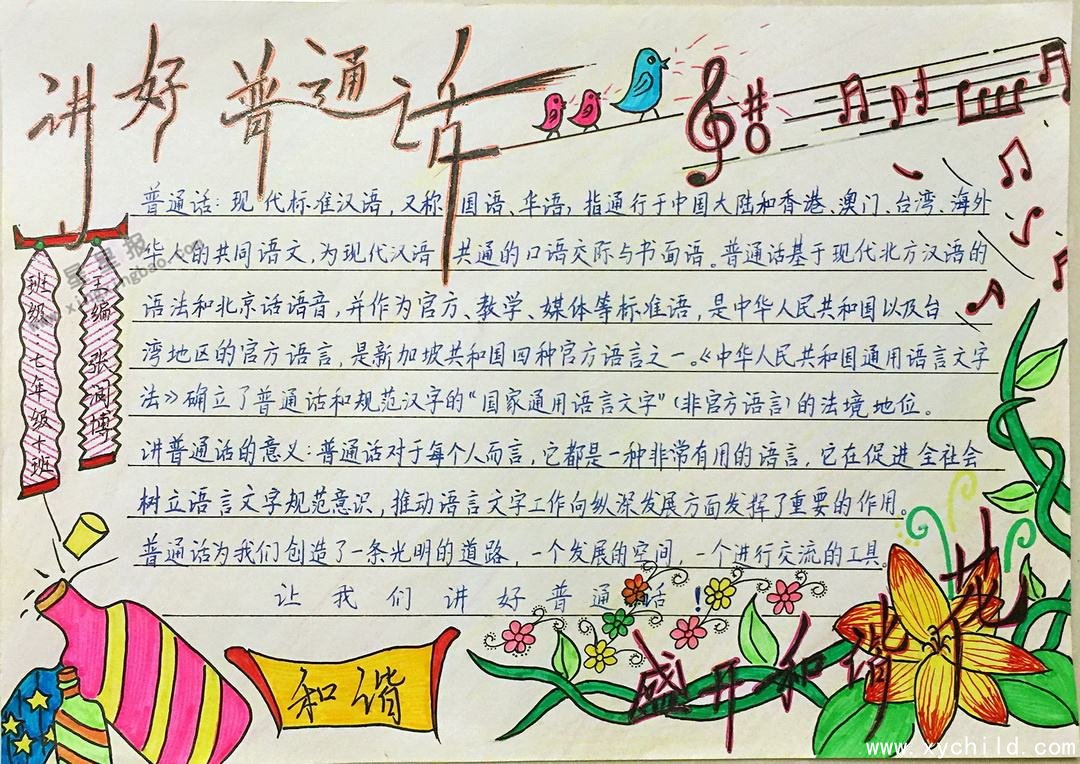 讲好普通话
普通话：现代标准汉语，又称国语、华语，指通行于中国大陆和香港、澳门、台湾、海外
华人的共同语文，为现代汉语共通的口语交际与书面语。普通话基于现代北方汉语的
语法和北京话语音，并作为官方、教学、媒体等标准语，是中华人民共和国以及台
湾地区的官方语言，是新加坡共和国四种官方语言之一。《中华人民共和国通用语言文字
法》确立了普通话和规范汉字的“国家通用语言文字”（非官方语言）的法境地位。
讲普通话的意义：普通话对于每个人而言，它都是一种非常有用的语言，它在促进全社会
树立语言文字规范意识，推动语言文字工作向纵深发展方面发挥了重要的作用。
普通话为我们创造了一条光明的道路，一个发展的空间，一个进行交流的工具。
让我们讲好普通话！
主编：张润博
班级：七年级十班
和谐
盛开和谐花
星星报
www.xychild.com